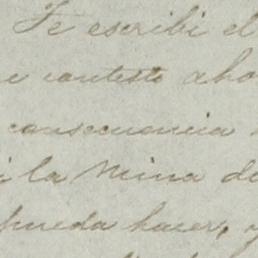 Te escribi el
e contesto aho
consecuencia
i la Mina de
pueda hacer, y